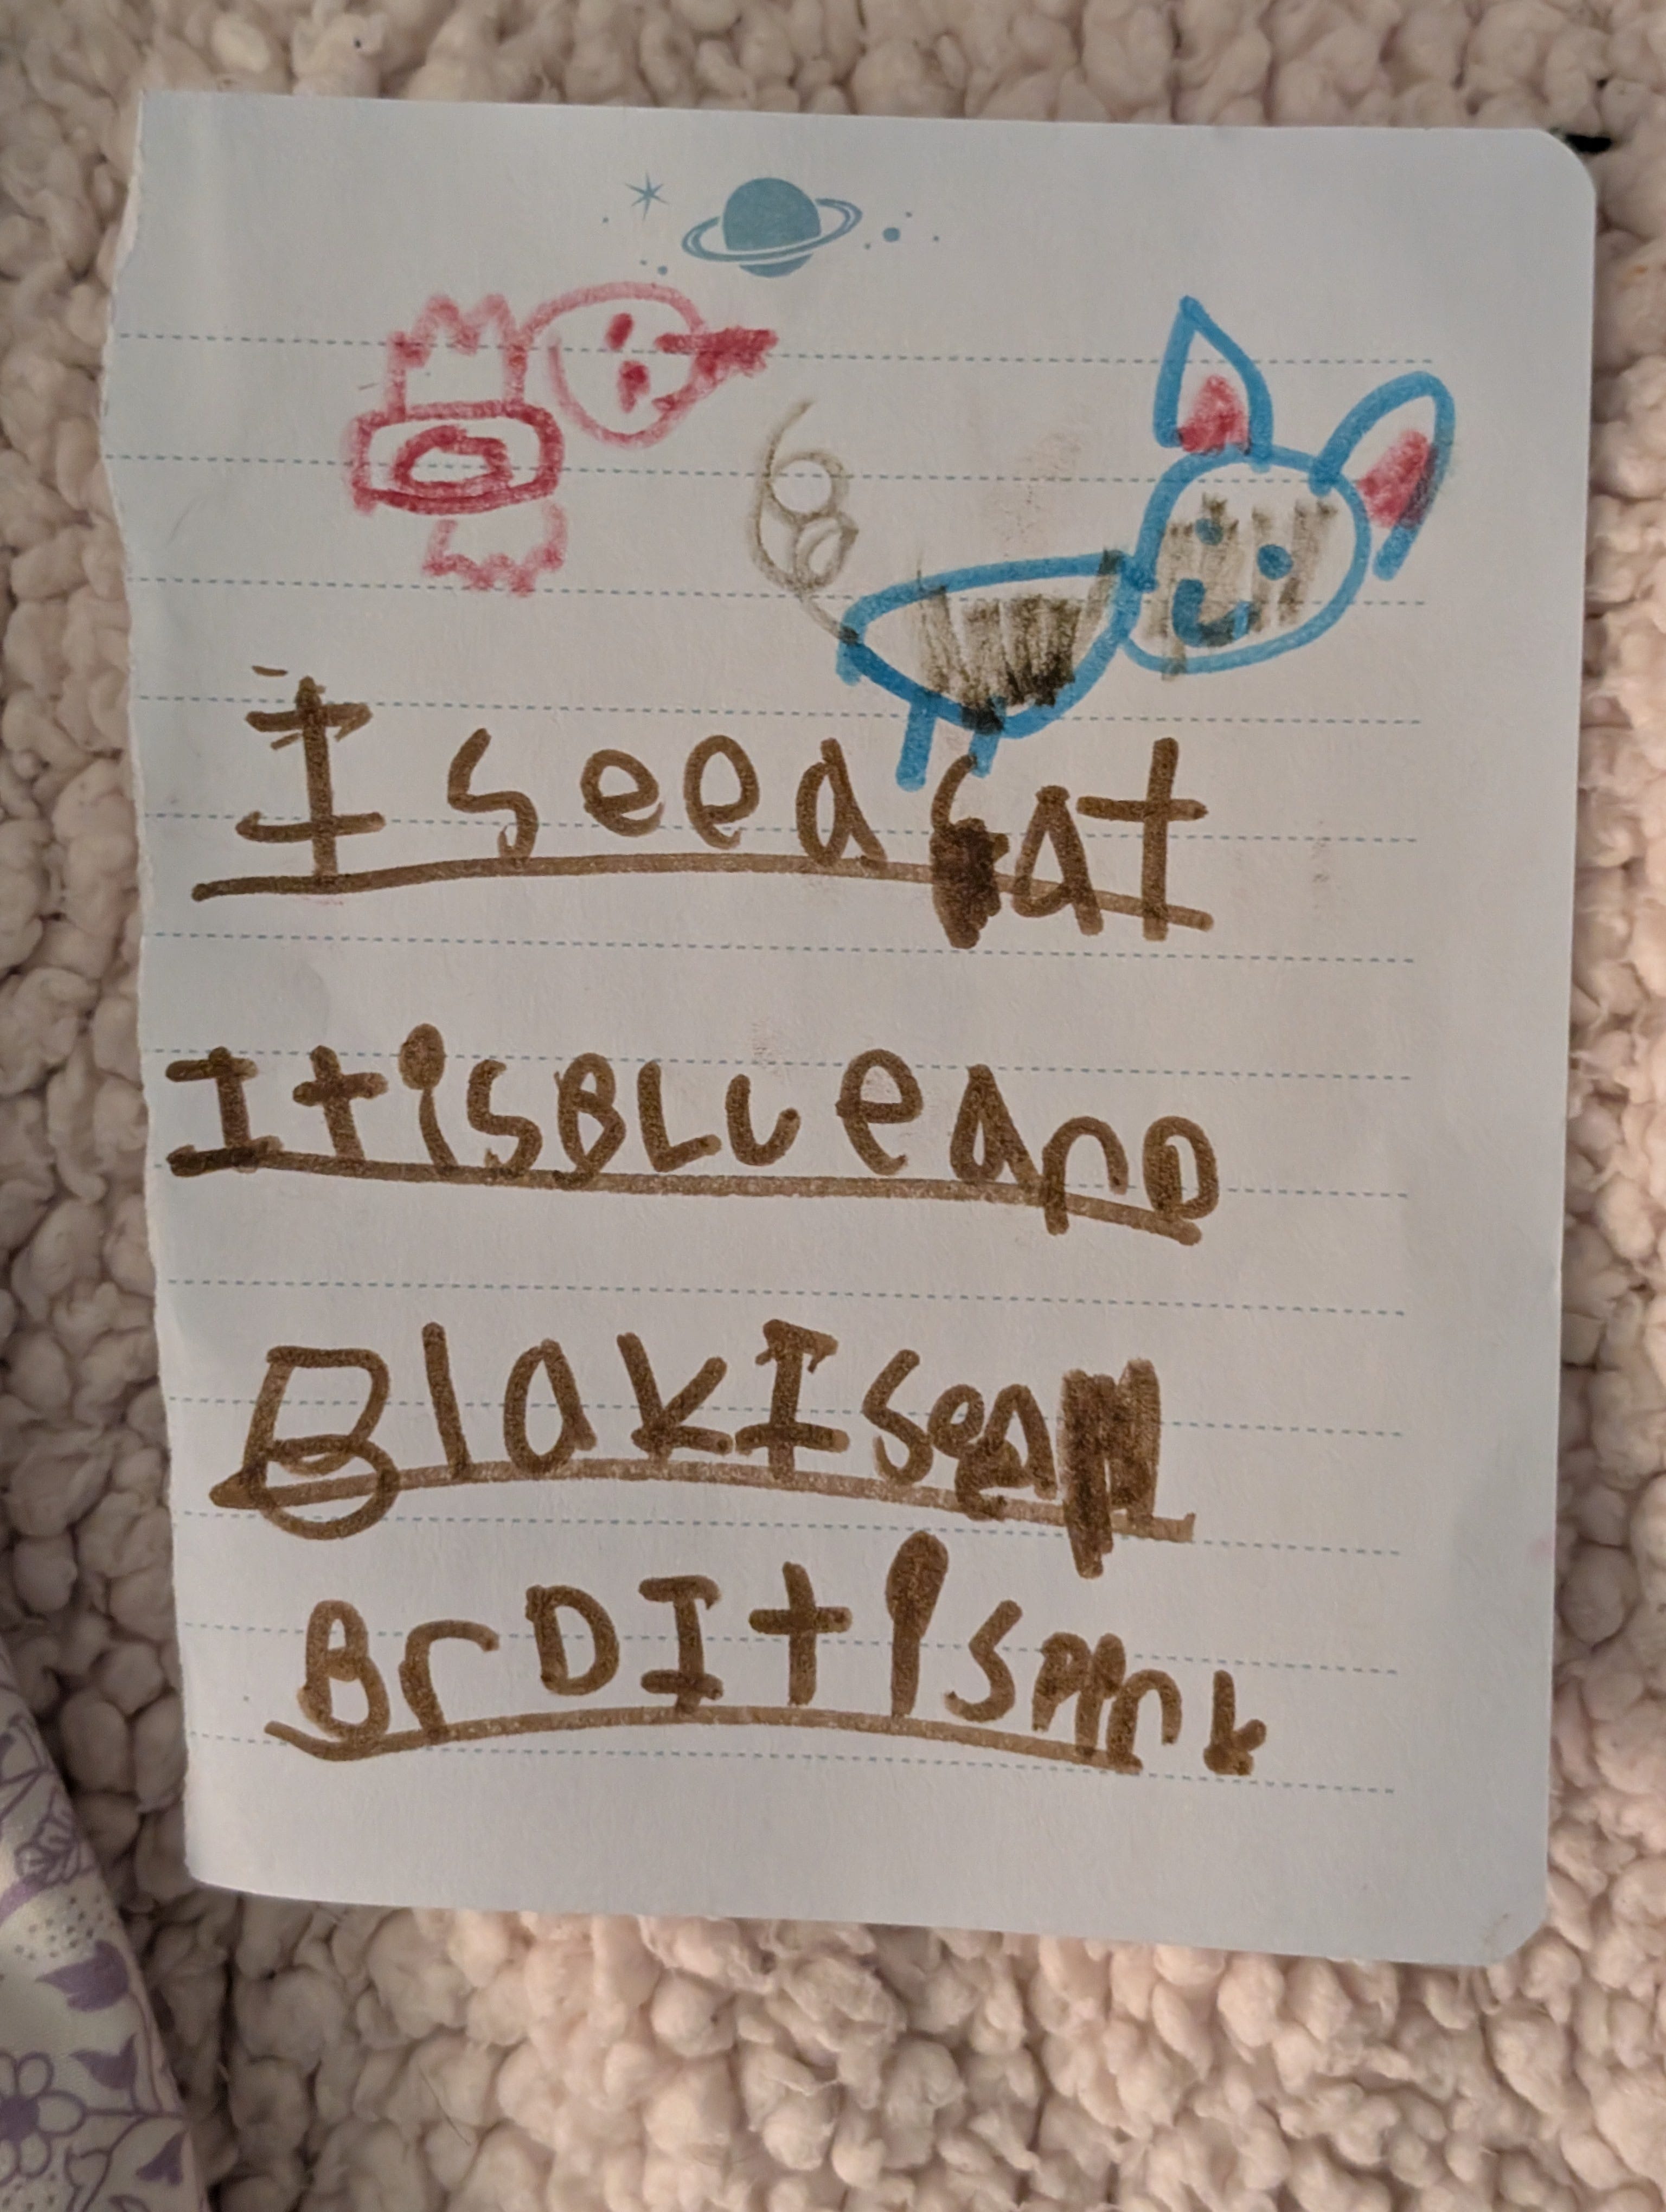 I see a cat
It is BLue anD
Blak I see a
BrD It is pink